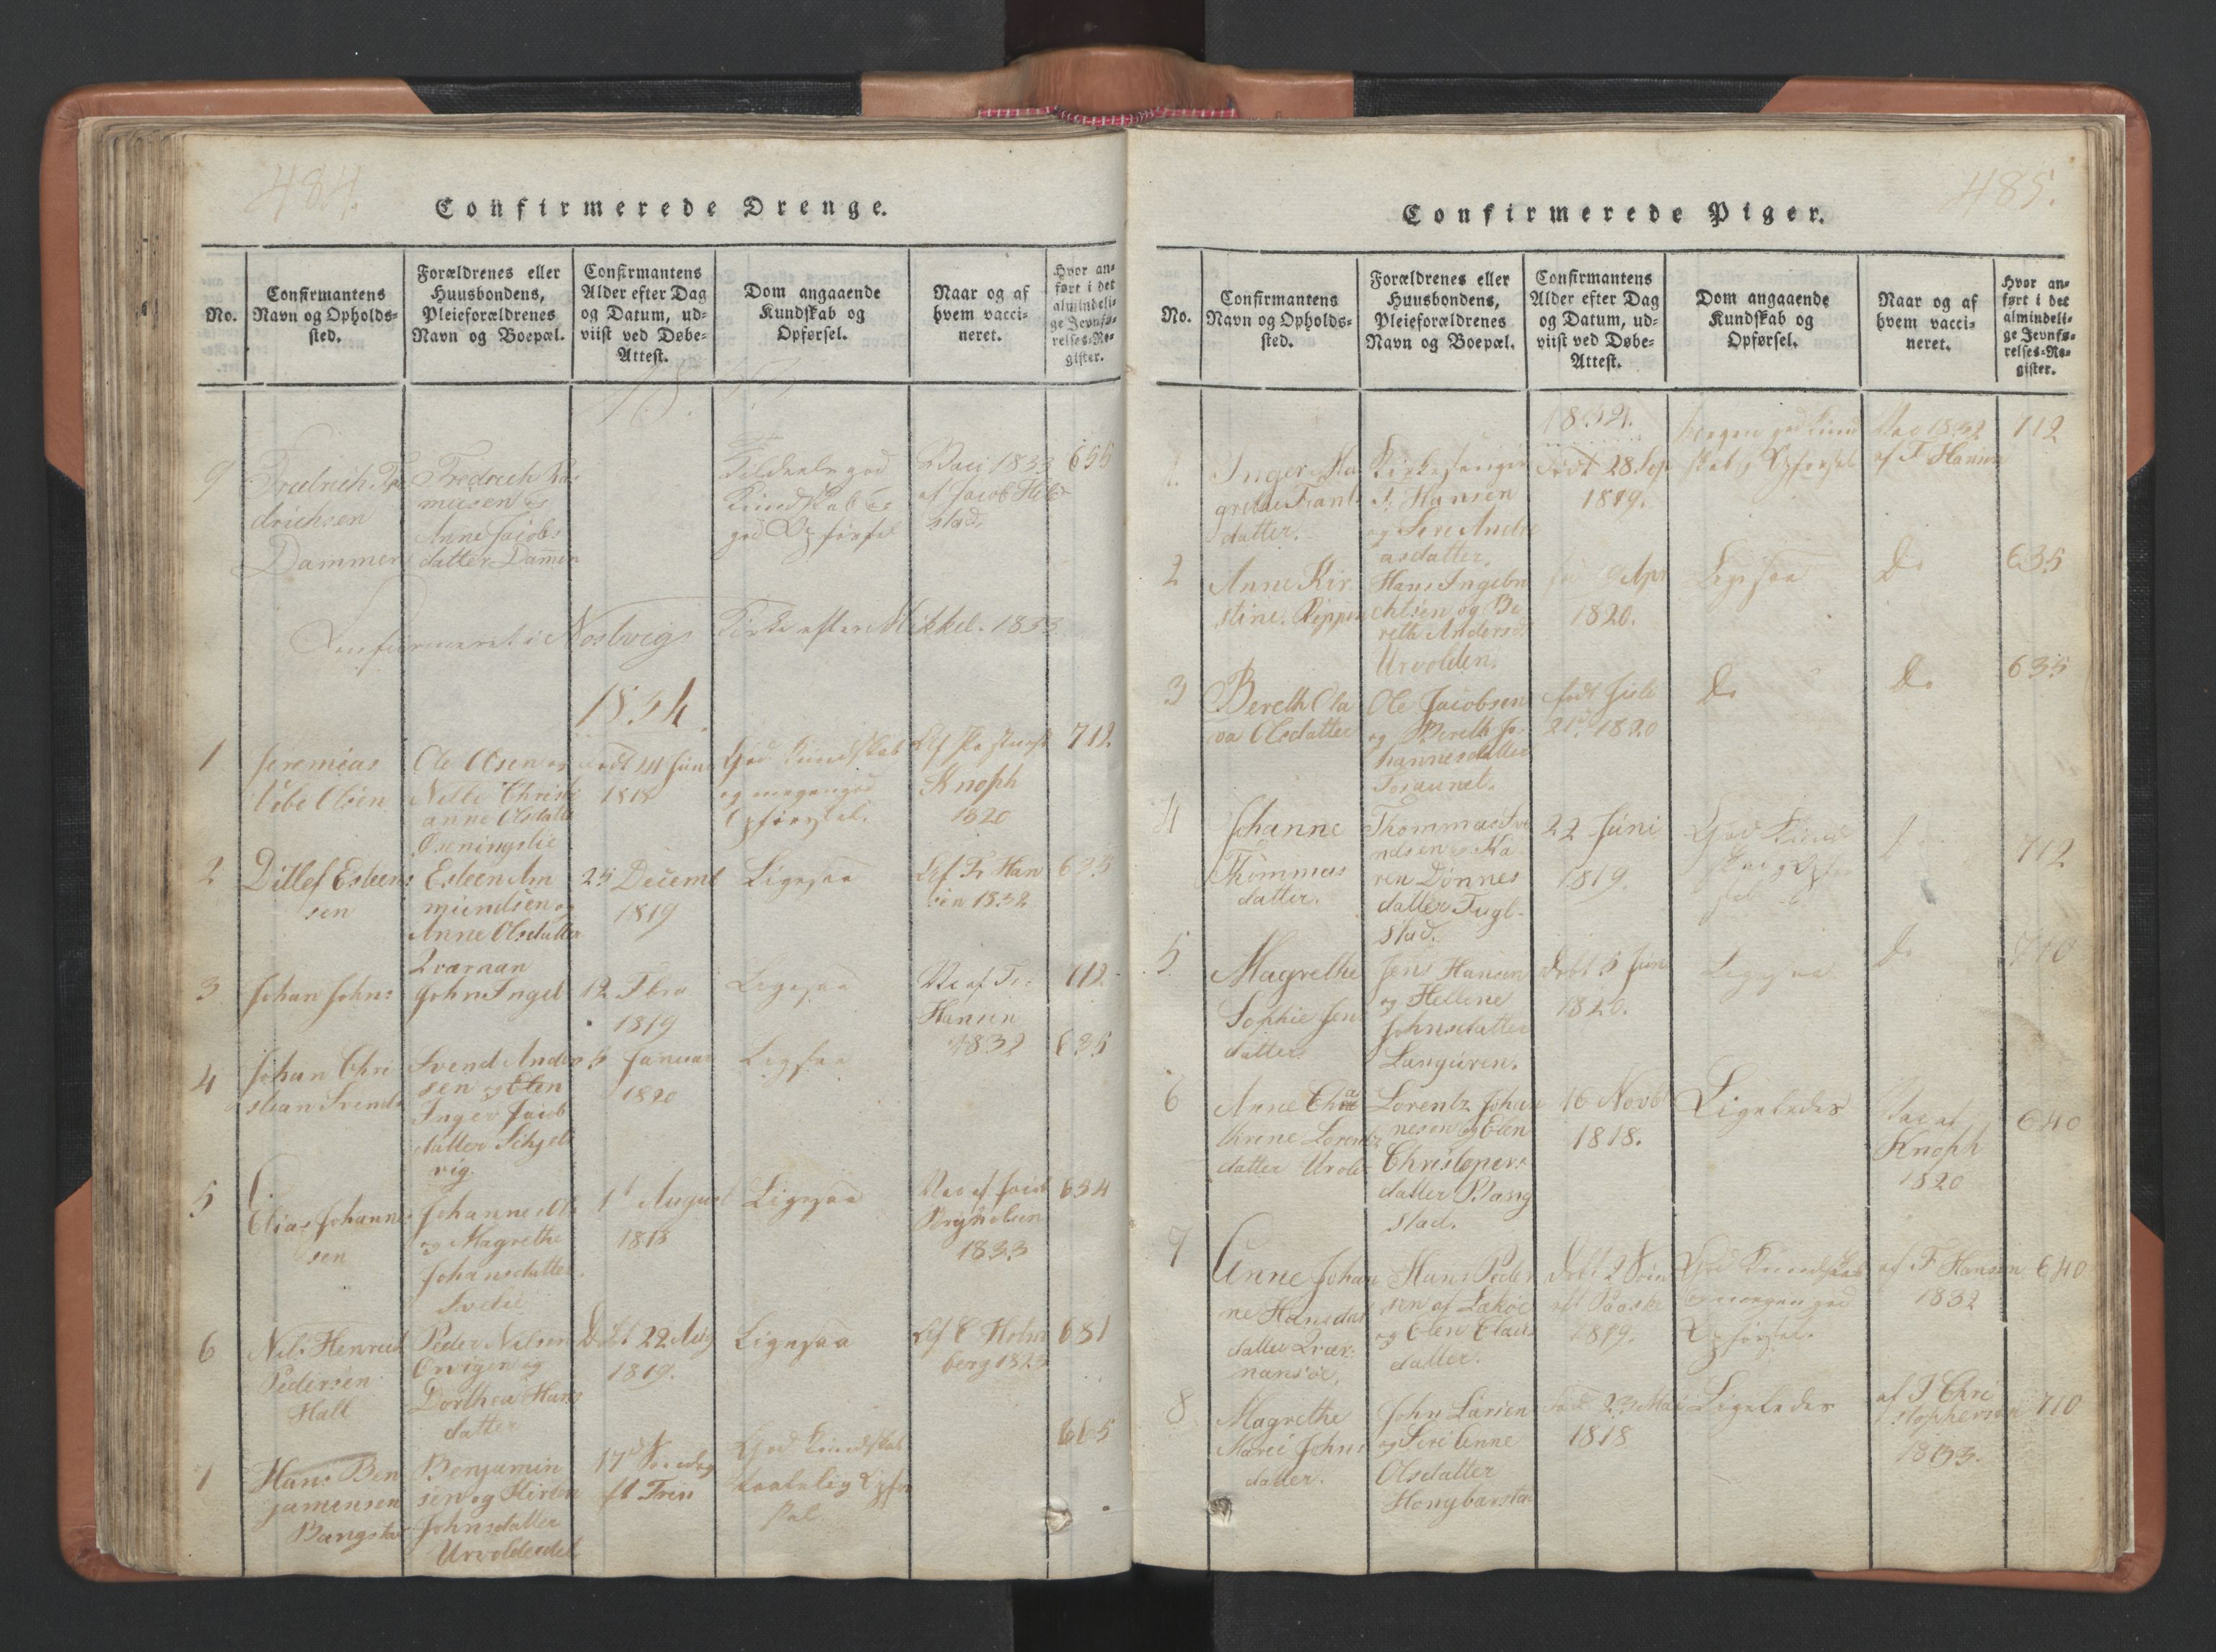 484.
Confirmerede Drenge.
No.
Confirmantens
Navn og Opholds-
sted.
Forældrenes eller
Huusbondens,
Pleieforældrenes
Navn og Boepæl.
Confirmantens
Alder efter Dag
og Datum, ud-
viist ved Døbe-
Attest.
Dom angaaende
Kundskab og
Opførsel.
Naar og af
hvem vacci-
neret.
Hvor an-
ført i det
almindeli-
ge Jevnfø-
relses-Re-
gister.
9
Fredrich Fre
drichsen
Dammen
Fredrich Ras
musen og
Anne Jacobs
datter Dammen
Kundskab og
god Opførsel
Vacc 1833
af Jacob
stad
655
Confirmeret i Kirke efter Mikkel. 1833
1834
1
Jeremias
Olsen
Ole Olsen og
Nelle Christi
anne Olsdatter
Oseningslie
født 24 Juni
1818
God Kundskab
og megen god
Opførsel.
Af
Knoph
1820
712.
2
Ditlef Esteens
sen
Esteen Am
mundsen og
Anne Olsdatter
Qvarnan
25 Decemb
1819
Ligesaa
Af Fr Han
sen 1832
635
3
Johan Johns
John Ingeb
12 Fbru
1819
Ligesaa
Vac af Fr.
Hansen
1832
712.
4
Johan Chri
stian Svends
Svend Anders
sen og Elen
Inger Jacob
datter Schjel
vig.
5 Januar
1820
Ligesaa
635
5
Elias Johannes
sen
Johannes Ol
og Magrethe
Johansdatter
1 August
1818
Ligesaa
Vac af Jacob
Brynolsen
1833
634
6
Nils Henrich
Pedersen
Hall
Peder Nilsen
Orvigen og
Dorthea Hans
datter
Døbt 22 Aug
1819.
Ligesaa
Af C Holm
berg 1825
681
7
Hans Ben
jamensen
Bangstad
Benjamin
sen og Kirsten
Johnsdatter
Urvolderdel
17 Søndag
ft Trin
God Kundskab
665
485.
Confirmerede Piger.
No.
Confirmantens
Navn og Opholds-
sted.
Forældrenes eller
Huusbondens,
Pleieforældrenes
Navn og Boepæl.
Confirmantens
Alder efter Dag
og Datum, ud-
viist ved Døbe-
Attest.
Dom angaaende
Kundskab og
Opførsel.
Naar og af
hvem vacci-
neret.
Hvor an-
ført i det
almindeli-
ge Jevnfø-
relses-Re-
gister.
1834.
1
Inger Ma
grethe Frants
datter.
Kirkesanger
F. Hansen
og Sire Andre
asdatter.
Født 28 Sep
1819.
megen god Kund
skab og Opførsel
Vac 1832
af F Hansen
712
2
Anne Kir
stine. Reppen
Hans Ingebri
chtsen og Be
reth Andersd
Urvolden.
9 Apr
1820.
Ligesaa
Do
635
3
Bereth Ola
va Olsdatter
Ole Jacobsen
og Bereth Jo
hannesdatter
født Juli
21 1820
Do
Do
635
4
Johanne
Thommas
datter.
Thommas Sve
ndsen og Ka
ren Dønnes
datter Fugl-
stad.
22 Juni
1819.
God Kund
712
5
Magrethe
Sophie Jens
datter
Jens Hansen
og Hellene
Johnsdatter
Languren.
døbt 5 Juni
1820.
Ligesaa
Do
710
6
Anne Cha
thrine Lorentz
datter Urvold
Lorentz Johan
nesen og Elen
Christopers
datter Bang
stad.
16 Novb
1818.
Ligeledes
Vac af
Knoph
1820
640
7
Anne Johan
ne Hansdat
datter Qvær-
nansøe.
Hans Peder
sen af Lækøe
og Elen Claus
datter.
Døbt 2 Søn
eft Paaske
1819.
God Kundskab
og megen god
Opførsel.
af F Hansen
1832
640
8
Magrethe
Marei Johns
datter.
John Larsen
og Siri Anne
Olsdatter
Hongbarstad
23 Mai
1818
Ligeledes
af J Chri
stophersen
1833.
710